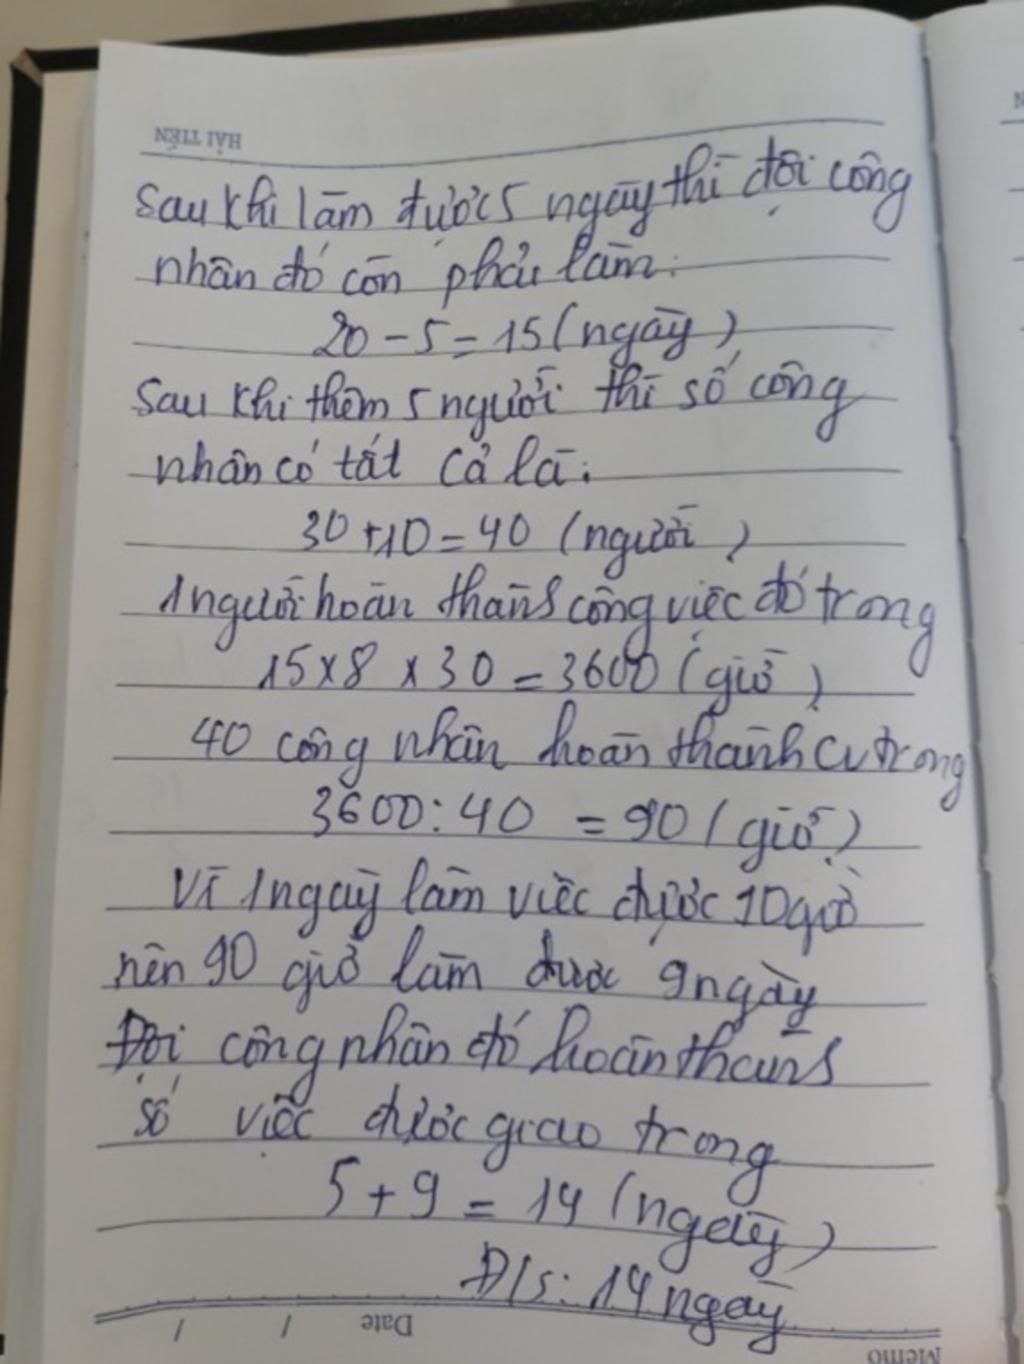 HẢI TIẾN
Sau khi làm được 5 ngày thì đội công
nhân đó còn phải làm:
20 - 5 = 15 (ngày)
Sau khi thêm 5 người thì số công
nhân có tất cả là:
30 + 10 = 40 (người)
1 người hoàn thành công việc đó trong
15 x 8 x 30 = 3600 (giờ)
40 công nhân hoàn thành cv trong
3600 : 40 = 90 (giờ)
Vì 1 ngày làm việc được 10 giờ
nên 90 giờ làm được 9 ngày
Đội công nhân đó hoàn thành
số việc được giao trong
5 + 9 = 14 (ngày)
Đ/s: 14 ngày
Date / /
Memo